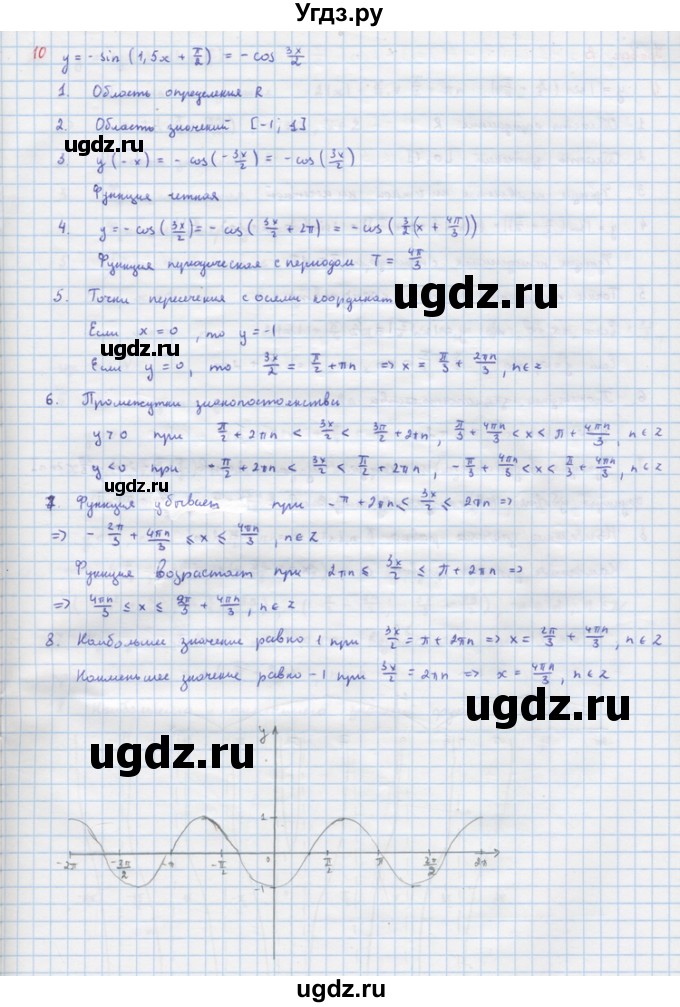 Угдз.ру
10 y = - sin (1,5x + π/2) = - cos 3x/2
1. Область определения R
2. Область значений [-1; 1]
3. y(-x) = - cos(-3x/2) = - cos(3x/2)
Функция четная
4. y = - cos(3x/2) = - cos(3x/2 + 2π) = - cos(3/2(x + 4π/3))
Функция периодическая с периодом T = 4π/3
5. Точки пересечения с осями координат
Если x = 0, то y = -1
Если y = 0, то 3x/2 = π/2 + πn => x = π/3 + 2πn/3, n∈Z
6. Промежутки знакопостоянства
y > 0 при π/2 + 2πn < 3x/2 < 3π/2 + 2πn, π/3 + 4πn/3 < x < π + 4πn/3, n∈Z
y < 0 при -π/2 + 2πn < 3x/2 < π/2 + 2πn, -π/3 + 4πn/3 < x < π/3 + 4πn/3, n∈Z
7. Функция убывает при -π + 2πn ≤ 3x/2 ≤ 2πn =>
=> -2π/3 + 4πn/3 ≤ x ≤ 4πn/3, n∈Z
Функция возрастает при 2πn ≤ 3x/2 ≤ π + 2πn =>
=> 4πn/3 ≤ x ≤ 2π/3 + 4πn/3, n∈Z
8. Наибольшее значение равно 1 при 3x/2 = π + 2πn => x = 2π/3 + 4πn/3, n∈Z
Наименьшее значение равно -1 при 3x/2 = 2πn => x = 4πn/3, n∈Z
y
1
-2π -3π/2 -π -π/2 0 π/2 π 3π/2 2π
-1
ugdz.ru
ugdz.ru
ugdz.ru
ugdz.ru
ugdz.ru
ugdz.ru
ugdz.ru
ugdz.ru
ugdz.ru
ugdz.ru